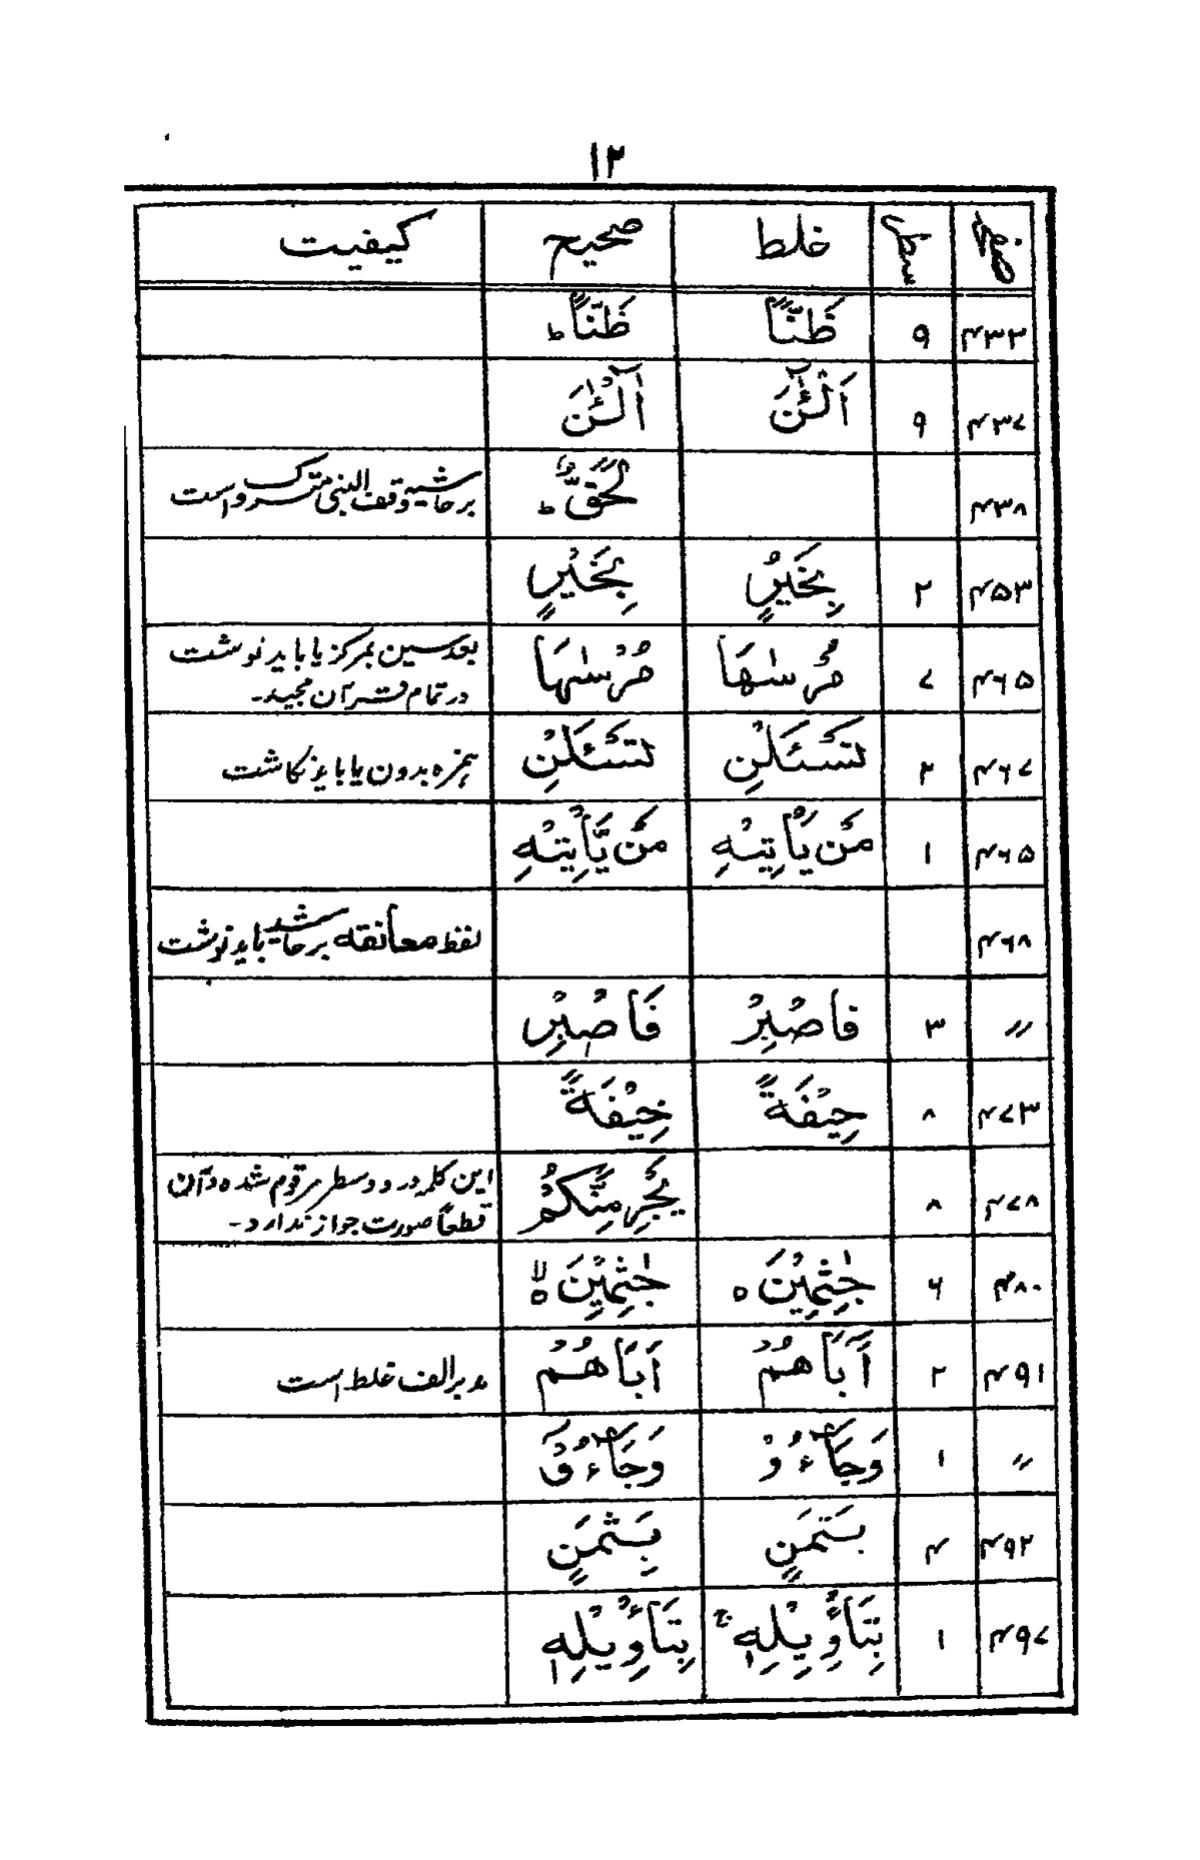 ۱۲
صفحہ سطر غلط صحیح کیفیت
۴۳۲ ۹ ظَنًّا ظَنًّا ط
۴۳۷ ۹ اَلْـٰٔنَ آلْـٰٔنَ
۴۳۸ لَحَقٌّ ط برحاشیہ وقف النبی متروک است
۴۵۳ ۲ بِخَيْرٍ بِخَيْرٍ
۴۶۵ ۷ مُرْسٰهَا مُرْسٰىهَا بعد سین بمرکز یا باید نوشت
در تمام قرآن مجید۔
۴۶۷ ۲ تَسْئَلْنِ تَسْئَلْنِ ہمزہ بدون یا باید نگاشت
۴۶۵ ۱ مَنْ يَأْتِيْهِ مَنْ يَّأْتِيْهِ
۴۶۸ لفظ معانقہ برحاشیہ باید نوشت
〃 ۳ فاصْبِرْ فَاصْبِرْ
۴۷۳ ۸ حِيْفَةً خِيْفَةً
۴۷۸ ۸ يَجْرِمَنَّكُمْ این کلمہ در دو سطر مرقوم شدہ و آن
قطعاً صورت جواز ندارد۔
۴۸۰ ۶ جٰثِمِيْنَ ہ جٰثِمِيْنَ ہ لا
۴۹۱ ۲ آَبَاَهُمْ اَبَاَهُمْ مد برالف غلط است
〃 ۱ وَجَآءُوْ وَجَآءُوْ
۴۹۲ ۴ بَسَتَمَنٍ بِثَمَنٍ
۴۹۷ ۱ بِتَأْوِيْلِهٖ ج بِتَأْوِيْلِهٖ